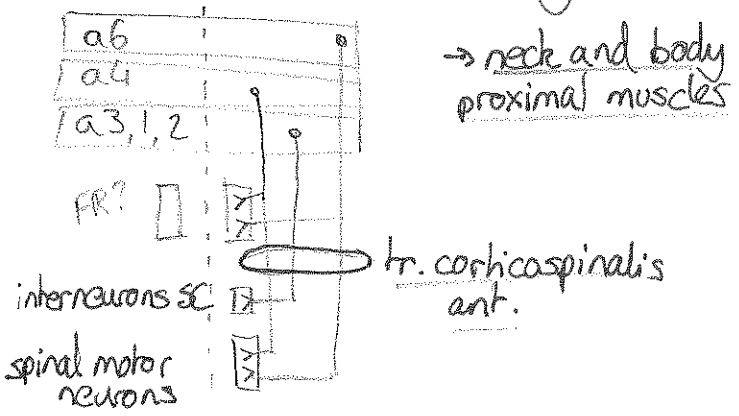 a6
→ neck and body
a4
proximal muscles
a3,1,2
FR?
tr. corticospinalis
ant.
interneurons SC
spinal motor
neurons